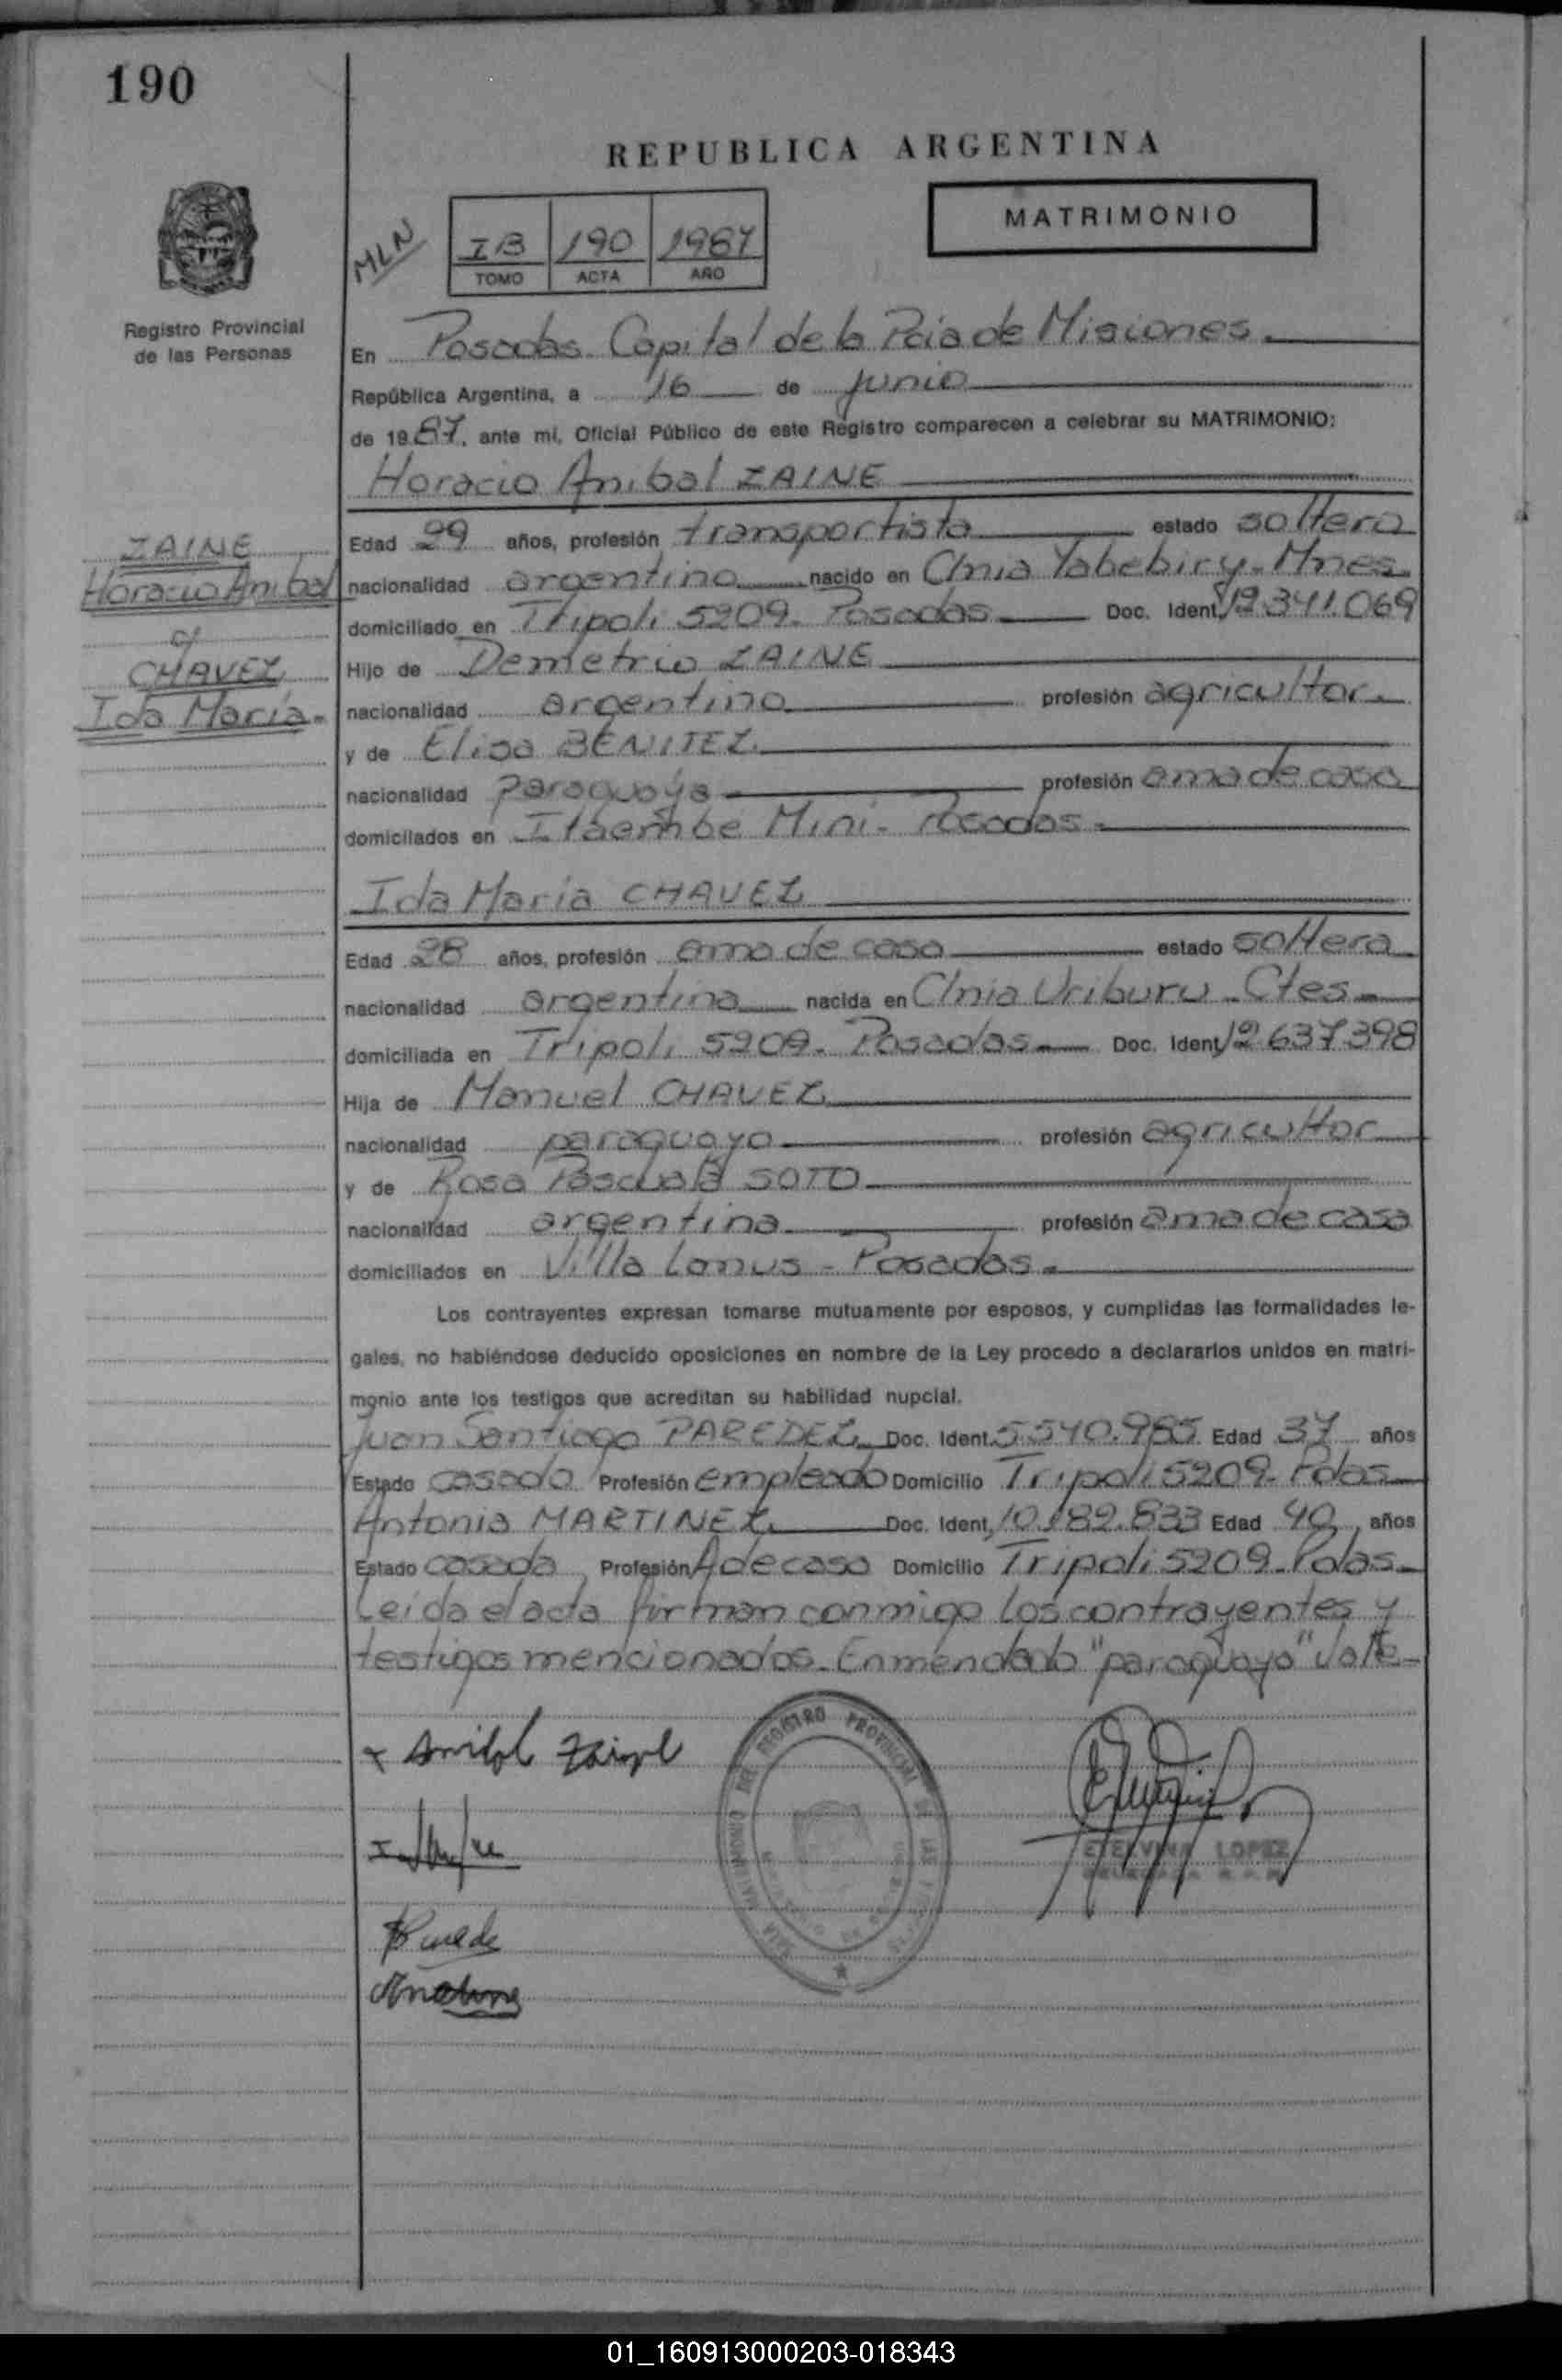 190
REPUBLICA ARGENTINA
MATRIMONIO
MLN
IB 190 1987
TOMO ACTA AÑO
Registro Provincial
de las Personas
En Posadas Capital de la Pcia de Misiones.
República Argentina, a 16 de junio
de 1987, ante mí, Oficial Público de este Registro comparecen a celebrar su MATRIMONIO:
Horacio Anibal ZAINE
ZAINE
Horacio Anibal
c/
CHAVEZ
Ida Maria.
Edad 29 años, profesión transportista estado soltero
nacionalidad argentino nacido en Clnia Yabebiry. Mnes
domiciliado en Tripoli 5209. Posadas Doc. Ident. 12.341.069
Hijo de Demetrio ZAINE
nacionalidad argentino profesión agricultor.
y de Elisa BENITEZ.
nacionalidad paraguaya profesión ama de casa
domiciliados en Itaembe Mini. Posadas.
Ida Maria CHAVEZ
Edad 28 años, profesión ama de casa estado soltera
nacionalidad argentina nacida en Clnia Uriburu. Ctes.
domiciliada en Tripoli 5209. Posadas. Doc. Ident. 12.637.398
Hija de Manuel CHAVEZ.
nacionalidad paraguayo profesión agricultor
y de Rosa Pascuala SOTO
nacionalidad argentina profesión ama de casa
domiciliados en Villa Lanus - Posadas.
Los contrayentes expresan tomarse mutuamente por esposos, y cumplidas las formalidades le-
gales, no habiéndose deducido oposiciones en nombre de la Ley procedo a declararlos unidos en matri-
monio ante los testigos que acreditan su habilidad nupcial.
Juan Santiago PAREDEZ Doc. Ident. 5.540.985 Edad 37 años
Estado casado Profesión empleado Domicilio Tripoli 5209. Pdas.
Antonia MARTINEZ Doc. Ident. 10.182.833 Edad 40 años
Estado casada Profesión A de casa Domicilio Tripoli 5209. Pdas.
Leída el acta firman conmigo los contrayentes y
testigos mencionados. Enmendado "paraguayo" Vale.
x Anibal Zaine
REGISTRO PROVINCIAL DE LAS
ETELVINA LOPEZ
01_160913000203-018343